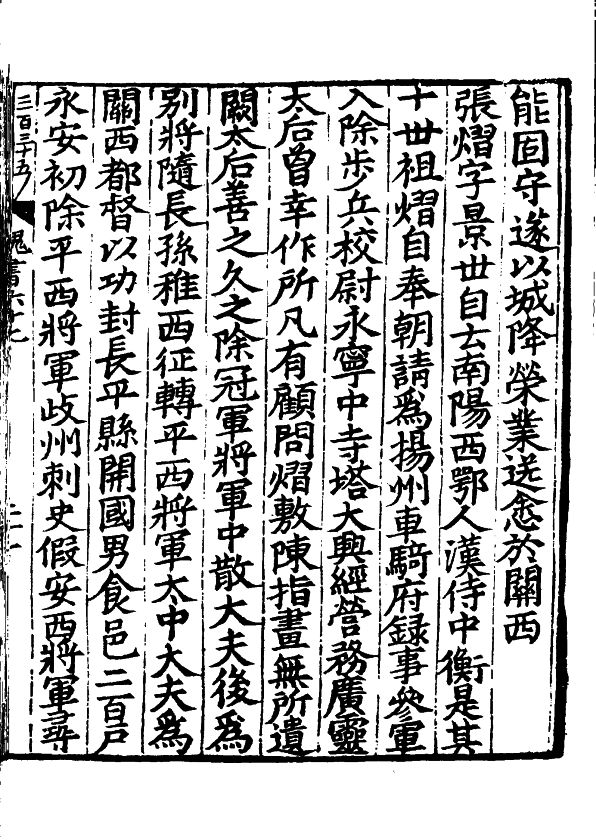 能固守遂以城降榮業送悆於關西
張熠字景世自云南陽西鄂人漢侍中衡是其
十世祖熠自奉朝請爲揚州車騎府録事參軍
入除步兵校尉永寧中寺塔大興經營務廣靈
太后曽幸作所凡有顧問熠敷陳指畫無所遺
闕太后善之久之除冠軍將軍中散大夫後爲
别將隨長孫稚西征轉平西將軍太中大夫爲
關西都督以功封長平縣開國男食邑二百戸
永安初除平西將軍歧州刺史假安西將軍尋
三百三十五
魏書六十七